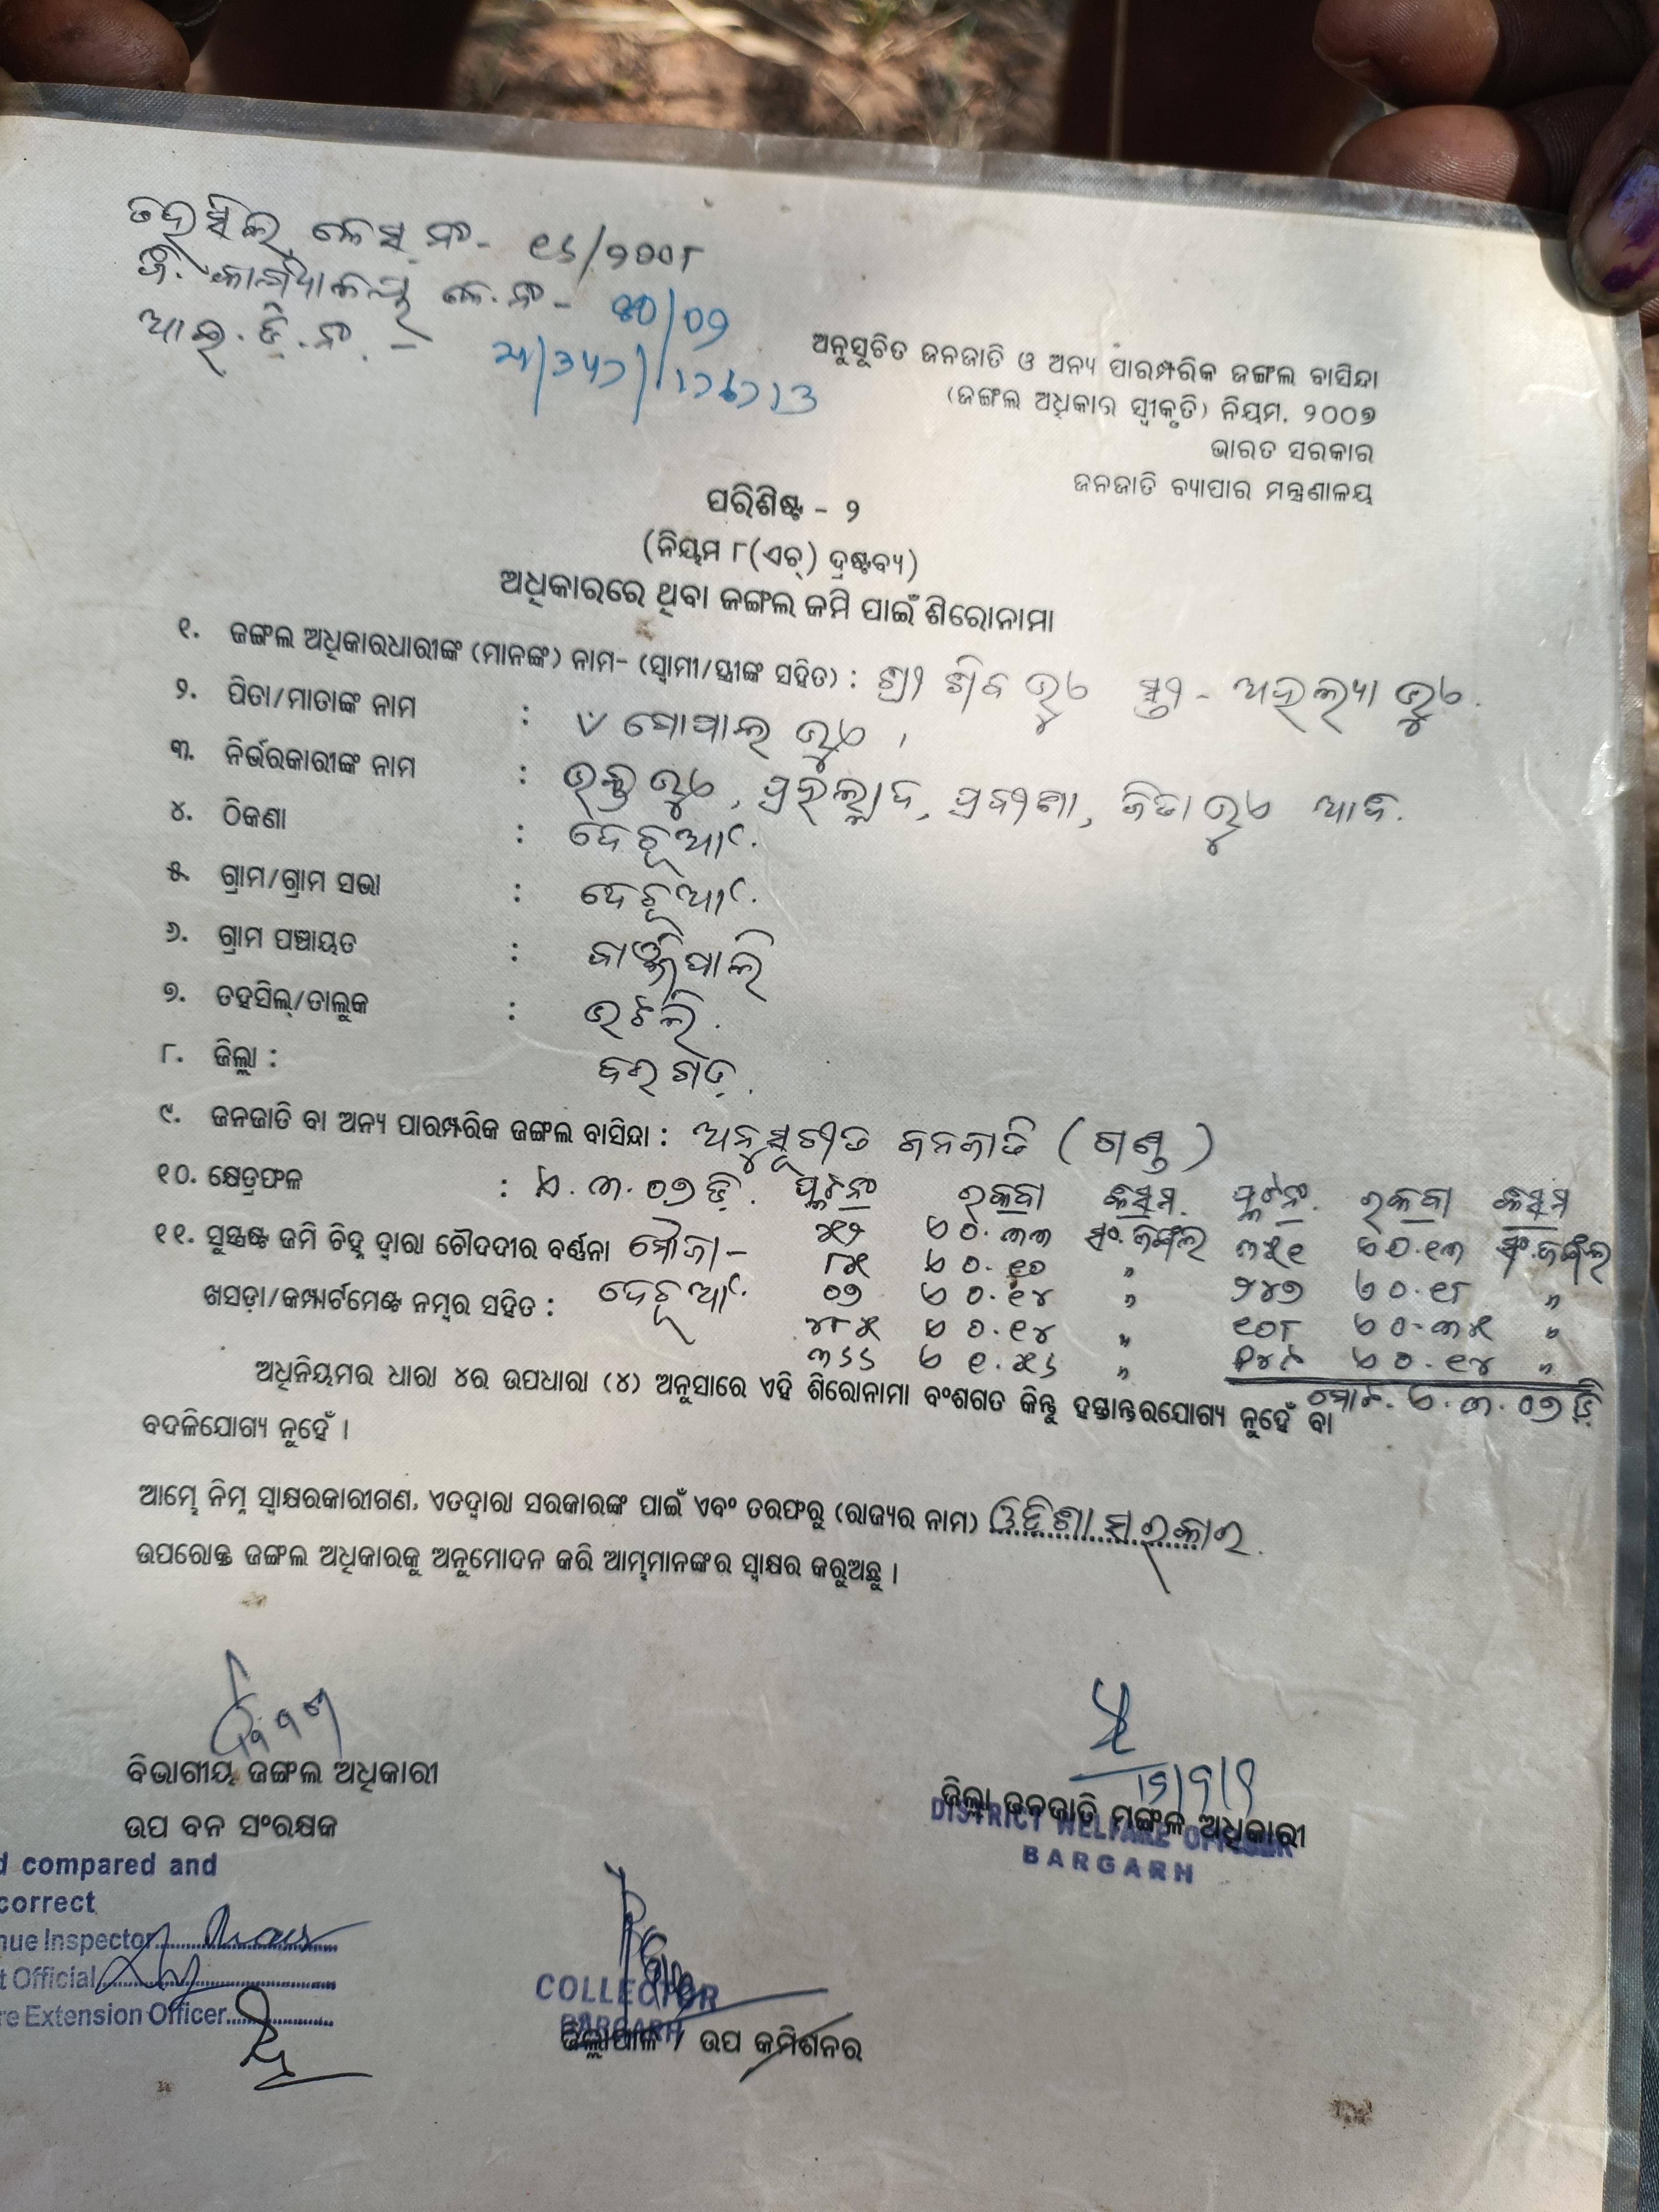 ତହସିଲ କେସ ନଂ- ୧୬/୨୦୦୮
ଜି. କାର୍ଯ୍ୟାଳୟ କେ.ନଂ-
ଆଇ.ଡି.ନଂ. -
ଅନୁସୂଚିତ ଜନଜାତି ଓ ଅନ୍ୟ ପାରମ୍ପରିକ ଜଙ୍ଗଲ ବାସିନ୍ଦା
(ଜଙ୍ଗଲ ଅଧିକାର ସ୍ୱୀକୃତି) ନିୟମ, ୨୦୦୭
ଭାରତ ସରକାର
ଜନଜାତି ବ୍ୟାପାର ମନ୍ତ୍ରଣାଳୟ
ପରିଶିଷ୍ଟ - ୨
(ନିୟମ ୮(ଏଚ୍) ଦ୍ରଷ୍ଟବ୍ୟ)
ଅଧିକାରରେ ଥିବା ଜଙ୍ଗଲ ଜମି ପାଇଁ ଶିରୋନାମା
୧. ଜଙ୍ଗଲ ଅଧିକାରଧାରୀଙ୍କ (ମାନଙ୍କ) ନାମ- (ସ୍ୱାମୀ/ସ୍ତ୍ରୀଙ୍କ ସହିତ) : ଶ୍ରୀ ଶିବ ଭୁଏ ସ୍ତ୍ରୀ - ଅହଲ୍ୟା ଭୁଏ.
୨. ପିତା/ମାତାଙ୍କ ନାମ : ଗୋପାଲ ଭୁଏ ।
୩. ନିର୍ଭରକାରୀଙ୍କ ନାମ : ଭକ୍ତ ଭୁଏ, ପ୍ରହଲ୍ଲାଦ, ଭୁଏ
୪. ଠିକଣା : ଦେଚୂଆଁ.
୫. ଗ୍ରାମ/ଗ୍ରାମ ସଭା : ଦେଚୂଆଁ.
୬. ଗ୍ରାମ ପଞ୍ଚାୟତ :
୭. ତହସିଲ୍/ତାଲୁକ : ଭଟଲି.
୮. ଜିଲ୍ଲା : ବରଗଡ଼.
୯. ଜନଜାତି ବା ଅନ୍ୟ ପାରମ୍ପରିକ ଜଙ୍ଗଲ ବାସିନ୍ଦା : ଅନୁସୂଚୀତ ଜନଜାତି (ଗଣ୍ଡ)
୧୦. କ୍ଷେତ୍ରଫଳ : ଏ.୩.୦୭ ଡି. ପ୍ଲଟନଂ ରକବା କିସମ. ପ୍ଲଟନଂ. ରକବା କିସମ
୧୧. ସୁସ୍ପଷ୍ଟ ଜମି ଚିହ୍ନ ଦ୍ୱାରା ଚୌଦଦୀର ବର୍ଣ୍ଣନା ମୌଜା - ୫୨ ଏ ୦.୩୩ ସଂ.ଜଙ୍ଗଲ ୩୫୧ ଏ ୦.୧୩ ସଂ.ଜଙ୍ଗଲ
୮୫ ଏ ୦.୧୦ "
ଖସଡ଼ା/କମ୍ପାର୍ଟମେଣ୍ଟ ନମ୍ବର ସହିତ : ଦେଚୂଆଁ. ୦୭ ଏ ୦.୧୪ " ୨୪୭ ଏ ୦.୧୮ "
୪୮୫ ଏ ୦.୧୪ " ୧୦୮ ଏ ୦-୩୫ "
୩୬୬ ଏ ୧.୫୬ " ଏ ୦.୧୪ "
ମୋଟ. ଏ.୩.୦୭ ଡି
ଅଧିନିୟମର ଧାରା ୪ର ଉପଧାରା (୪) ଅନୁସାରେ ଏହି ଶିରୋନାମା ବଂଶଗତ କିନ୍ତୁ ହସ୍ତାନ୍ତରଯୋଗ୍ୟ ନୁହେଁ ବା
ବଦଳିଯୋଗ୍ୟ ନୁହେଁ ।
ଆମ୍ଭେ ନିମ୍ନ ସ୍ୱାକ୍ଷରକାରୀଗଣ, ଏତଦ୍ୱାରା ସରକାରଙ୍କ ପାଇଁ ଏବଂ ତରଫରୁ (ରାଜ୍ୟର ନାମ) ଓଡିଶା ସରକାର.
ଉପରୋକ୍ତ ଜଙ୍ଗଲ ଅଧିକାରକୁ ଅନୁମୋଦନ କରି ଆମ୍ଭମାନଙ୍କର ସ୍ୱାକ୍ଷର କରୁଅଛୁ ।
ବିଭାଗୀୟ ଜଙ୍ଗଲ ଅଧିକାରୀ
ଉପ ବନ ସଂରକ୍ଷକ
ଜିଲ୍ଲା ଜନଜାତି ମଙ୍ଗଳ ଅଧିକାରୀ
DISTRICT WELFARE OFFICER
BARGARH
d compared and
correct
nue Inspector
t Official
re Extension Officer
COLLECTOR
BARGARH
ଜିଲ୍ଲାପାଳ / ଉପ କମିଶନର